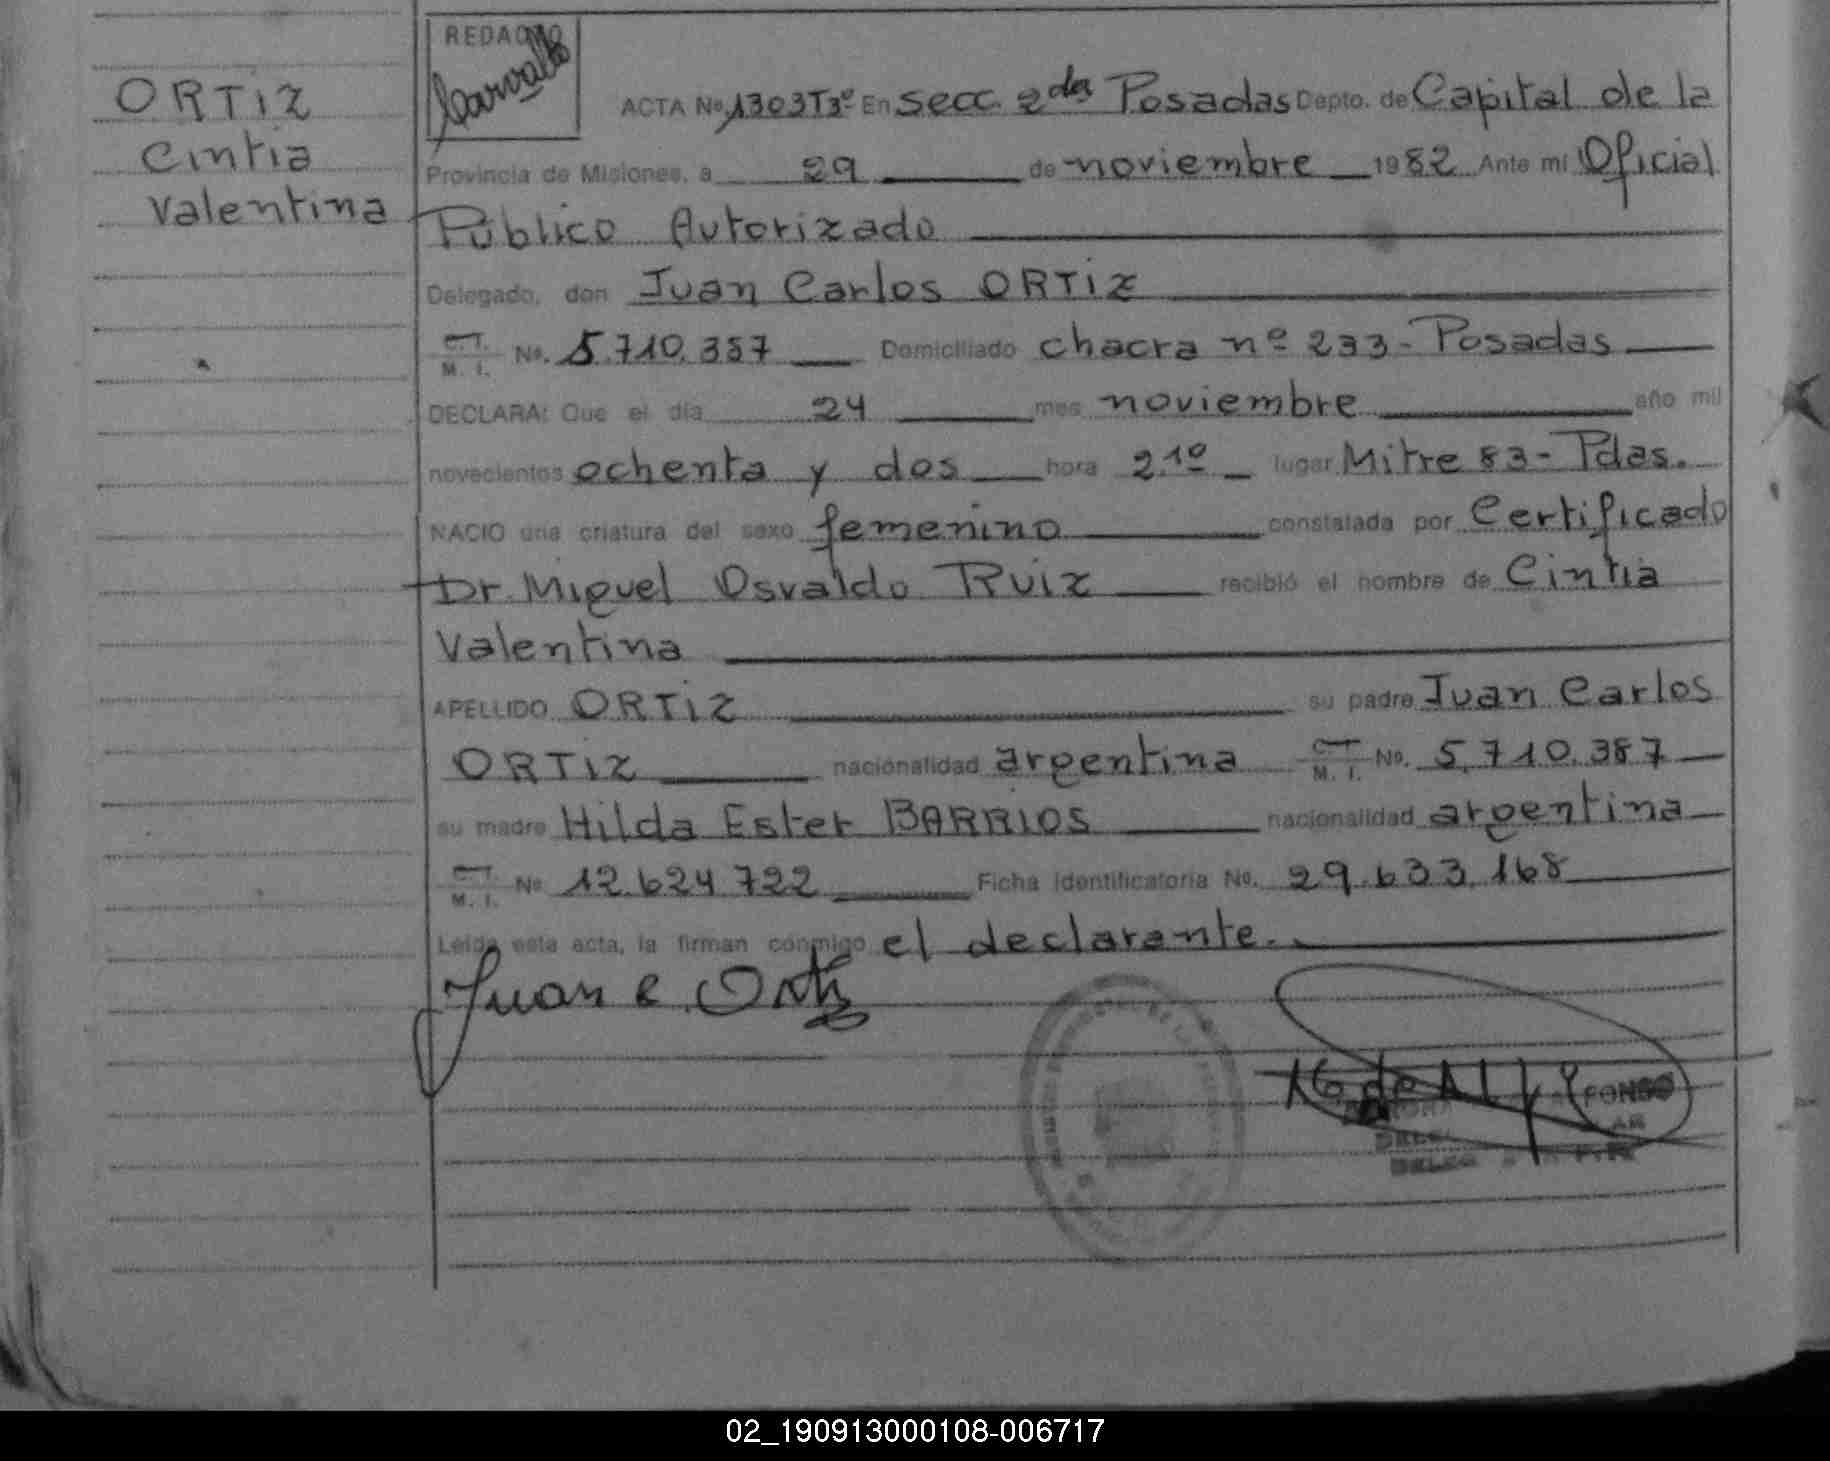 ORTIZ
Cintia
Valentina
REDACTO
Carvallo
ACTA No. 1303 T3º En secc. 2da Posadas Depto. de Capital de la
Provincia de Misiones, a 29 de noviembre 1982 Ante mi Oficial
Público Autorizado
Delegado, don Juan Carlos ORTIZ
C.I.
M. I. No. 5.710.387 Domiciliado chacra nº 233 - Posadas
DECLARA: Que el día 24 mes noviembre año mil
novecientos ochenta y dos hora 2.10 lugar Mitre 83 - Pdas.
NACIO una criatura del sexo femenino constatada por Certificado
Dr. Miguel Osvaldo RUIZ recibió el nombre de Cintia
Valentina
APELLIDO ORTIZ su padre Juan Carlos
ORTIZ nacionalidad argentina C.I. M. I. No. 5.710.387
su madre Hilda Ester BARRIOS nacionalidad argentina
C.I.
M. I. No 12.624.722 Ficha identificatoria No. 29.633.168
Leída esta acta, la firman conmigo el declarante.
Juan C Ortiz
FONSO
02_190913000108-006717